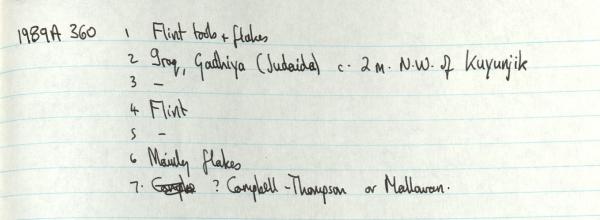 1989A 360 1 Flint tools + flakes
2 Iraq, Gadhiya (Judaida) c. 2 m. N.W. of Kuyunjik
3 —
4 Flint
5 —
6 Mainly flakes
7. ? Campbell-Thompson or Mallowan.